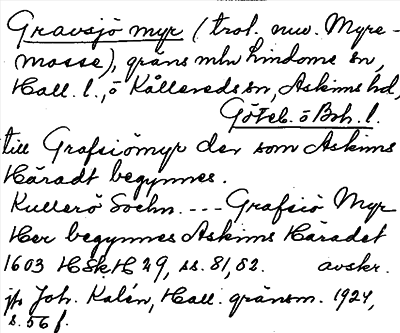 Gravsjö myr (trol. nuv. Myre-
mosse), gräns mln Lindome sn,
Hall. l., o Kållereds sn, Askims hd,
Göteb. o Boh. l.
till Grafsiömyr der som Askims
Häradt begynnes.
Kullerö Sochn. --- Grafsiö Myr
Her begynnes Askims Häradet
1603 HSkH 29, ss. 81, 82. avskr.
jfr Joh. Kalén, Hall. gränsm. 1924,
s. 56 f.